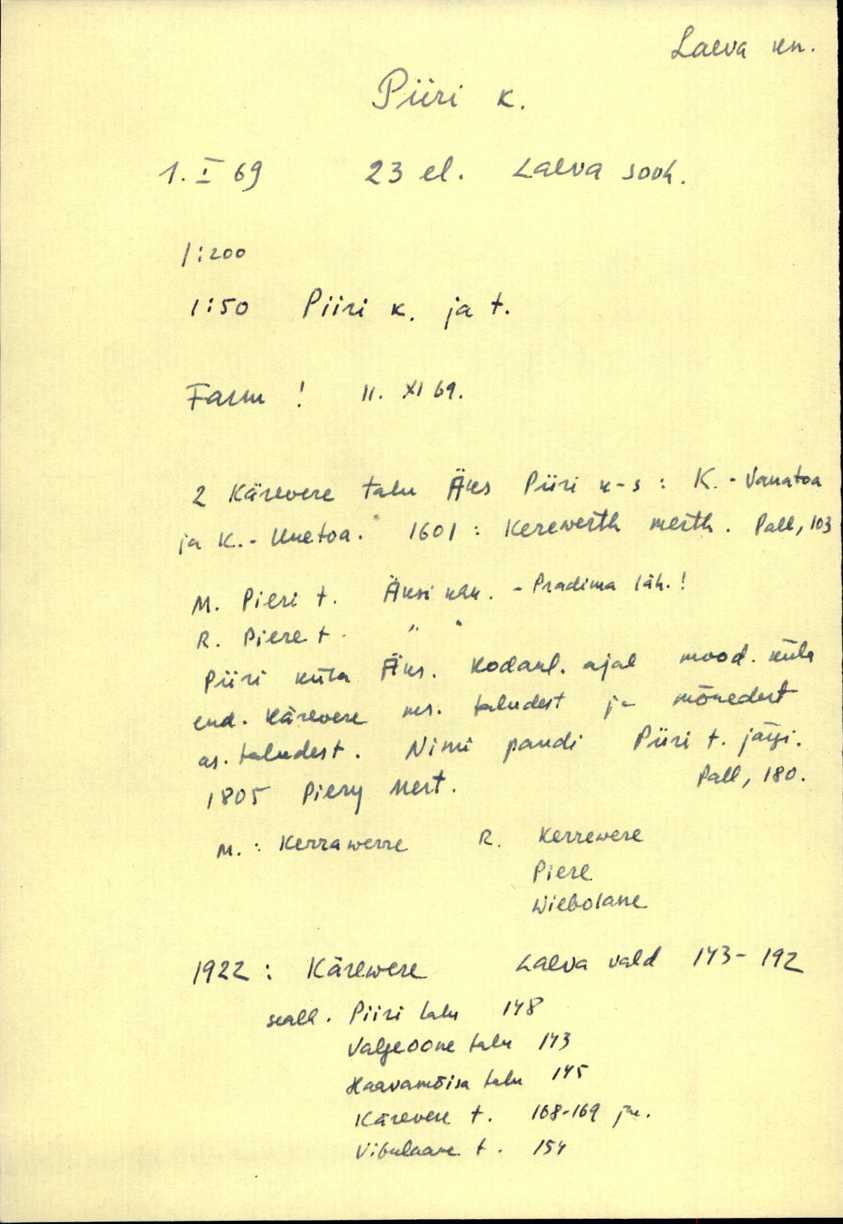 Laeva kn.
Piiri k.
1. I 69 23 el. Laeva sovh.
1:200
1:50 Piiri k. ja t.
Farm ! 11. XI 69.
2 Kärevere talu Äks Piiri k-s : K.-Vanatoa
ja K.-Uuetoa. 1601 : Kerewerth mesth. Pall, 103
M. Pieri t. Äksi khk. - Pradima läh.!
R. Piere t. " "
Piiri küla Äks. Kodanl. ajal mood. küla
end. Kärevere ms. taludest ja mõnedest
as. taludest. Nimi pandi Piiri t. järgi.
1805 Piery Mert. Pall, 180.
M. : Kerrawerre R. Kerrewere
Piere
Wiebolane
1922 : Kärewere Laeva vald 143-192
sealh. Piiri talu 148
Valgeoone talu 143
Haavamõisa talu 145
Kärevere t. 168-169 jne.
Vibulaane t. 154